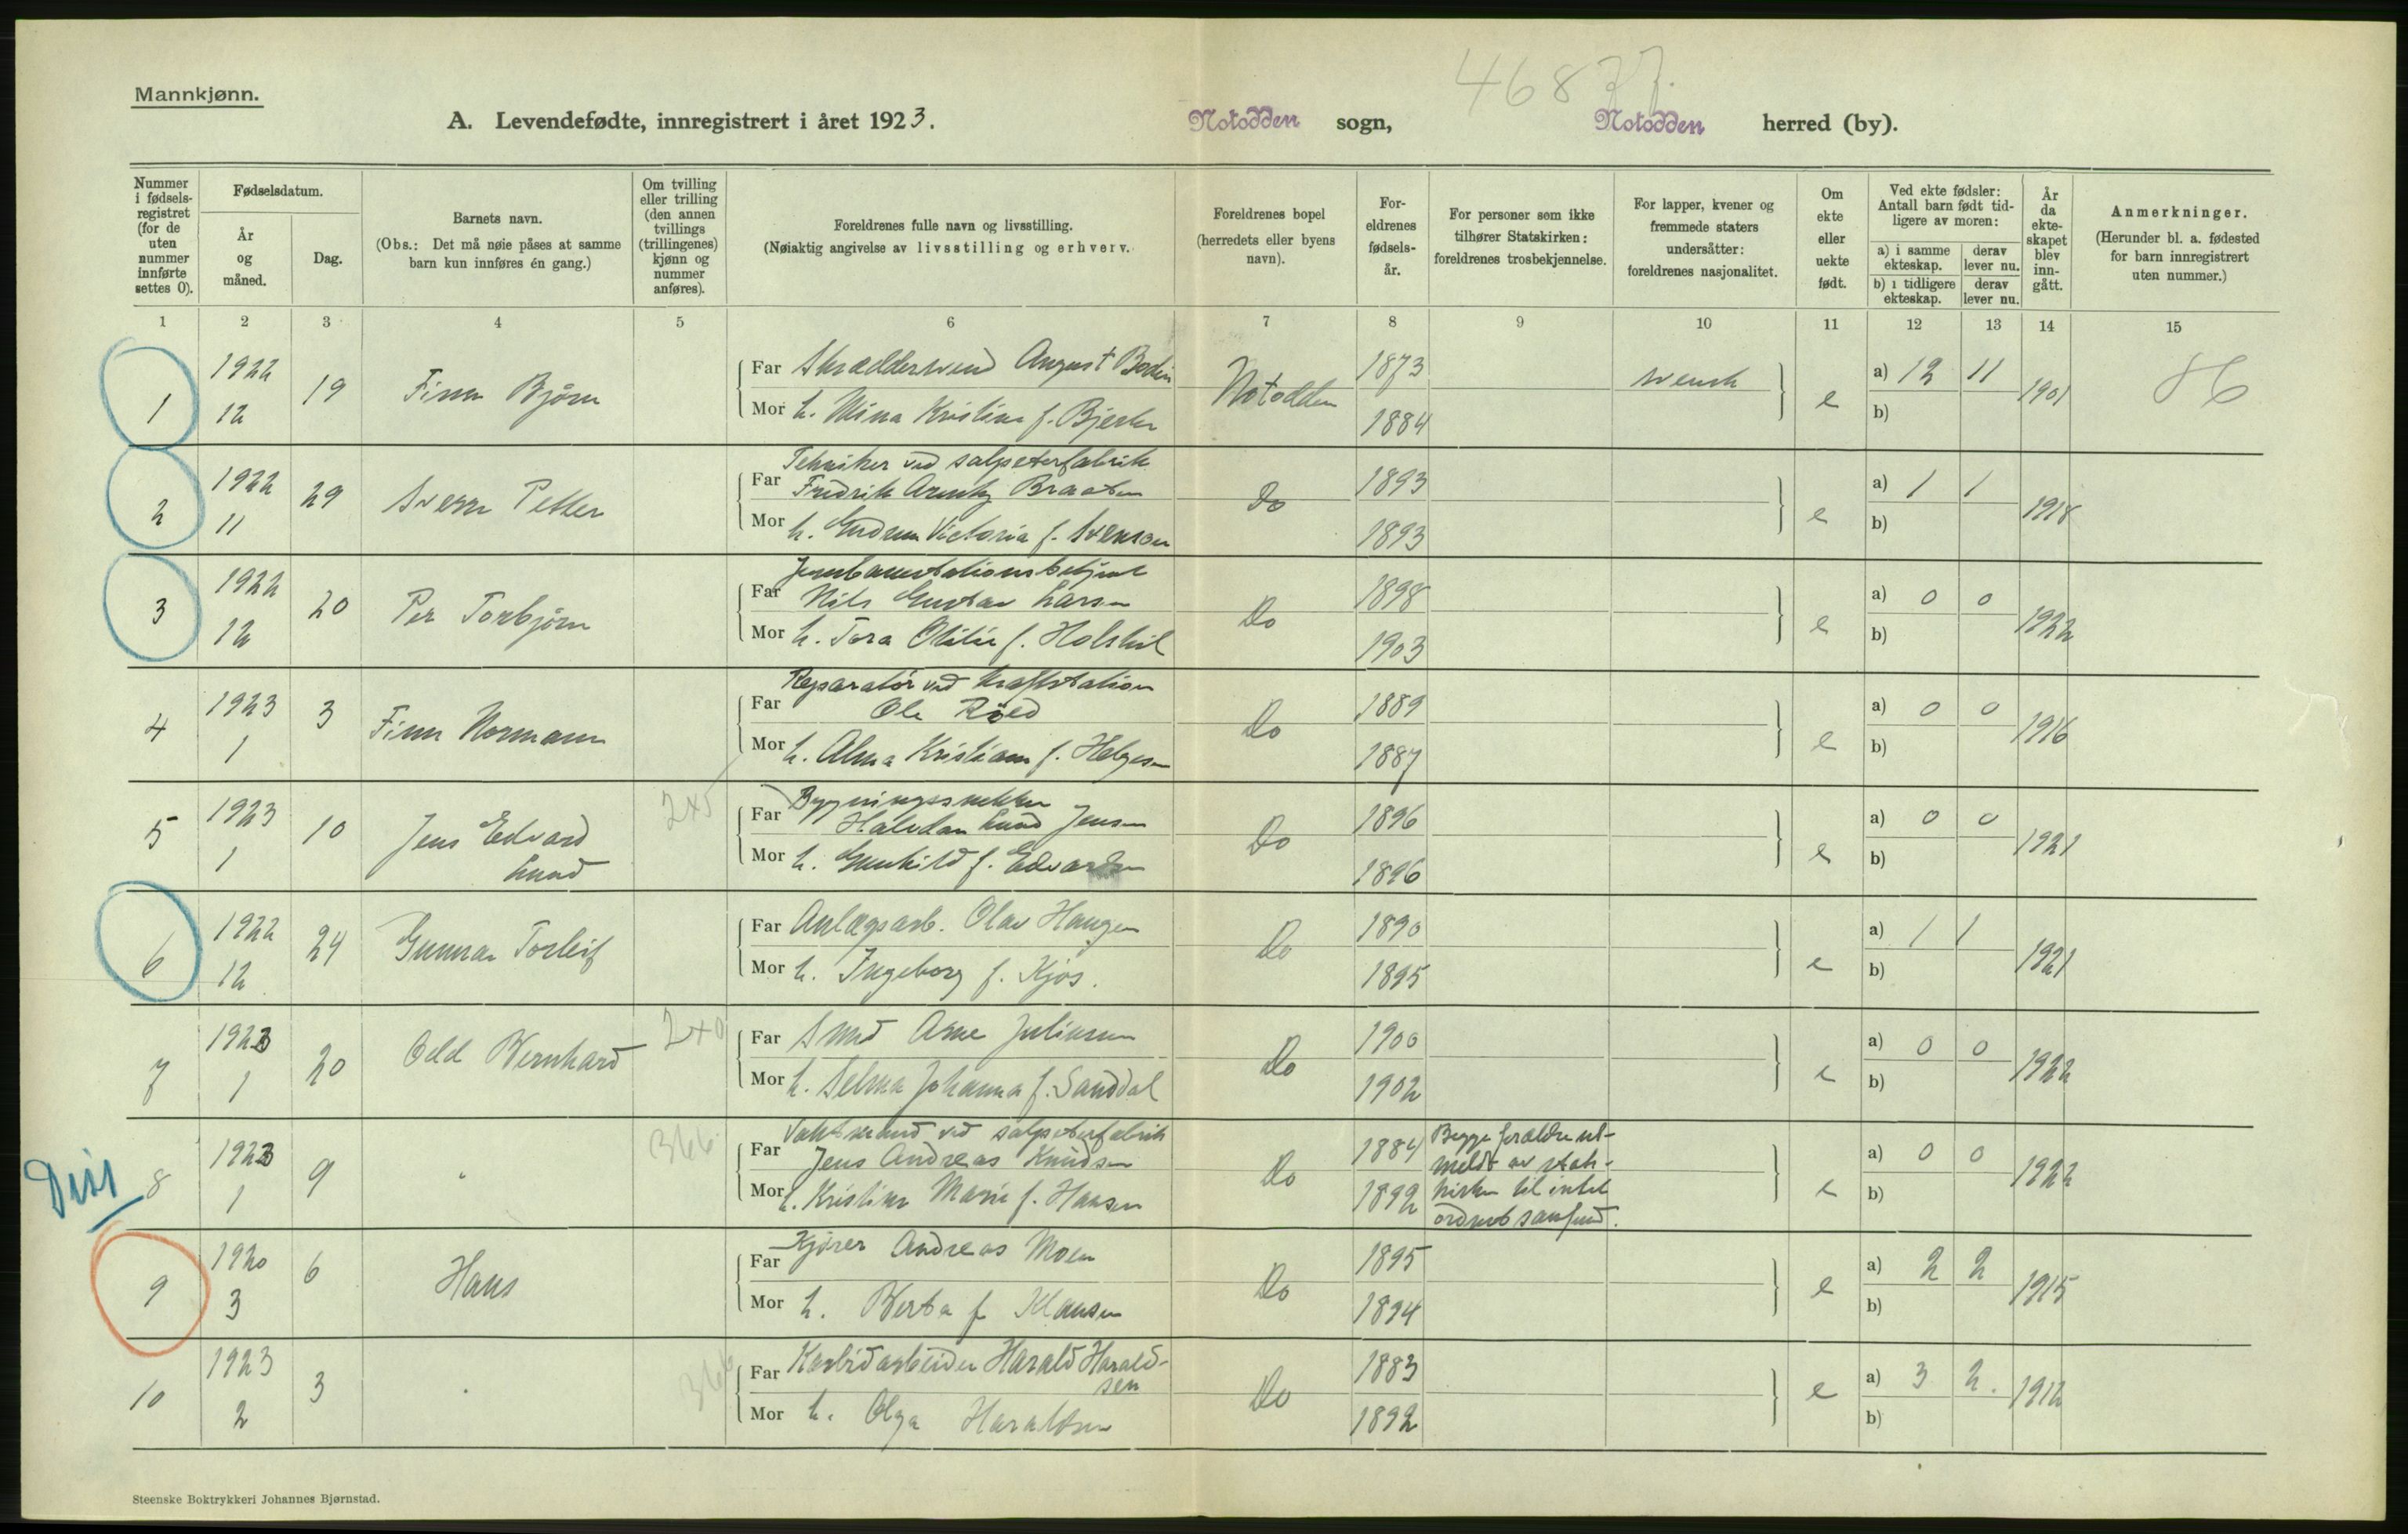 Mannkjønn.
46837.
A. Levendefødte, innregistrert i året 1923.
Notodden sogn, Notodden herred (by).
Nummer i fødsels-registret (for de uten nummer innførte settes 0).
Fødselsdatum.
År og måned.
Dag.
Barnets navn.
(Obs.: Det må nøie påses at samme barn kun innføres én gang.)
Om tvilling eller trilling (den annen tvillings (trillingenes) kjønn og nummer anføres).
Foreldrenes fulle navn og livsstilling.
(Nøiaktig angivelse av livsstilling og erhverv.
Foreldrenes bopel (herredets eller byens navn).
For-eldrenes fødsels-år.
For personer som ikke tilhører Statskirken: foreldrenes trosbekjennelse.
For lapper, kvener og fremmede staters undersåtter: foreldrenes nasjonalitet.
Om ekte eller uekte født.
Ved ekte fødsler: Antall barn født tid-ligere av moren:
a) i samme ekteskap.
derav lever nu.
b) i tidligere ekteskap.
derav lever nu.
År da ekte-skapet blev inn-gått.
Anmerkninger.
(Herunder bl. a. fødested for barn innregistrert uten nummer.)
1 2 3 4 5 6 7 8 9 10 11 12 13 14 15
1 1922 12 19 Finn Bjørn
Far Skræddersvend August Bodin Notodden 1873 svensk e a) 12 11 1901
Mor h. Mina Kristine f. Bjerke 1884 b)
2 1922 11 29 Svenn Petter
Tekniker ved salpeterfabrik
Far Fredrik Braaten Do 1893 e a) 1 1 1918
Mor h. Gudrun Victoria f. Svenson 1893 b)
3 1922 12 20 Per Torbjørn
Jernbanestationsbetjent
Far Nils Gustav Larsen Do 1898 e a) 0 0 1922
Mor h. Tora Otilie f. 1903 b)
4 1923 1 3 Finn Normann
Reparatør ved kraftstation
Far Ole Røed Do 1889 e a) 0 0 1916
Mor h. Alma Kristiane f. Helgesen 1887 b)
5 1923 1 10 Jens Edvard Lund 245
Bygningssnekker
Far Halvdan Lund Jensen Do 1896 e a) 0 0 1921
Mor h. Gunhild f. Edvardsen 1896 b)
6 1922 12 24 Gunnar Torleif
Far Anlægsarb. Olav Haugen Do 1890 e a) 1 1 1921
Mor h. Ingeborg f. Kjos. 1895 b)
7 1923 1 20 Odd Bernhard 240
Far Smed Arne Juliussen Do 1900 e a) 0 0 1922
Mor h. Selma Johanna f. Sanddal 1902 b)
8 1923 1 9 " 366
Vaktmand ved salpeterfabrik
Far Jens Andreas Knudsen Do 1884 e a) 0 0 1922
Mor h. Kristine Marie f. Hansen 1892 b)
Begge forældre ut-
meldt av stats-
kirken til intet
ordnet samfund.
9 1920 3 6 Hans
Far Kjører Andreas Moen Do 1895 e a) 2 2 1915
Mor h. Berta f. Klausen 1894 b)
10 1923 2 3 366
Far Karbidarbeider Harald Harald-
sen Do 1883 e a) 3 2. 1912
Mor h. Olga Haraldsen 1892 b)
Steenske Boktrykkeri Johannes Bjørnstad.